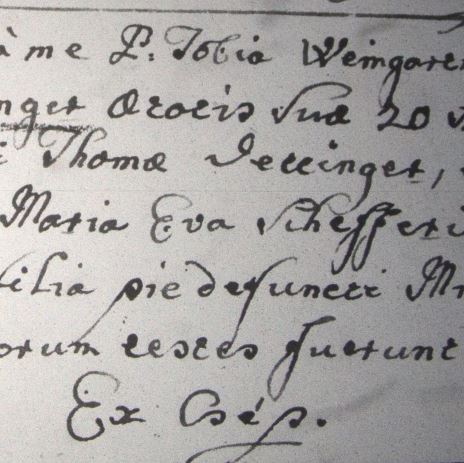 à me P: Tobia Weingart
nger Ætatis Suæ 20
i Thomæ Dettinger,
Maria Eva Schefferi
filia pie defuncti M
orum testes fuerunt
Ex Csép.